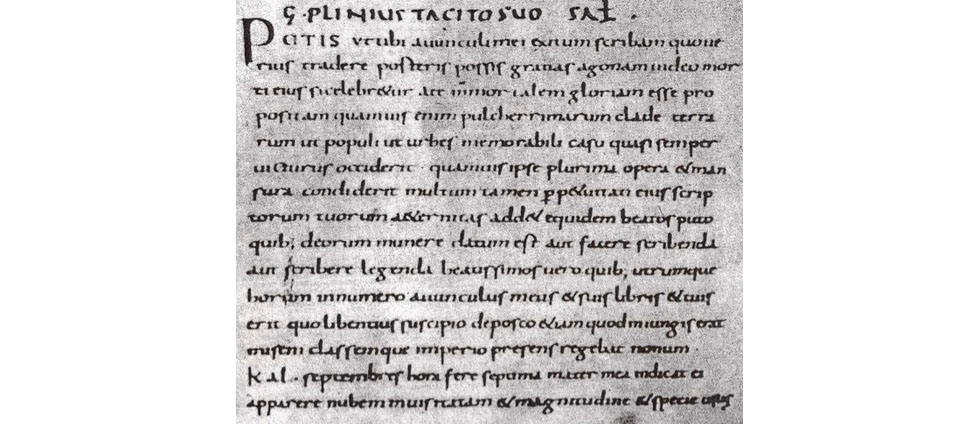 C · PLINIUS TACITO SUO SAL .
PETIS ut tibi auunculi mei exitum scribam quo ue
rius tradere posteris possis gratias ago nam uideo mor
ti eius si celebr&ur a te inmortalem gloriam esse pro
positam quamuis enim pulcherrimarum clade terra
rum ut populi ut urbes memorabili casu quasi semper
uicturus occiderit · quamuis ipse plurima opera & man
sura condiderit multum tamen ꝑp&uitati eius scrip
torum tuorum a&ernitas add& equidem beatos puto
quib; deorum munere datum est aut facere scribenda
aut scribere legenda beatissimos uero quib; utrumque
horum in numero auunculus meus & suis libris & tuis
erit quo libentius suscipio deposco &iam quod iniungis erat
miseni classemque imperio presens regebat nonum ·
Kal . septembres hora fere septima mater mea indicat ei
apparere nubem inusitatam & magnitudine & specie